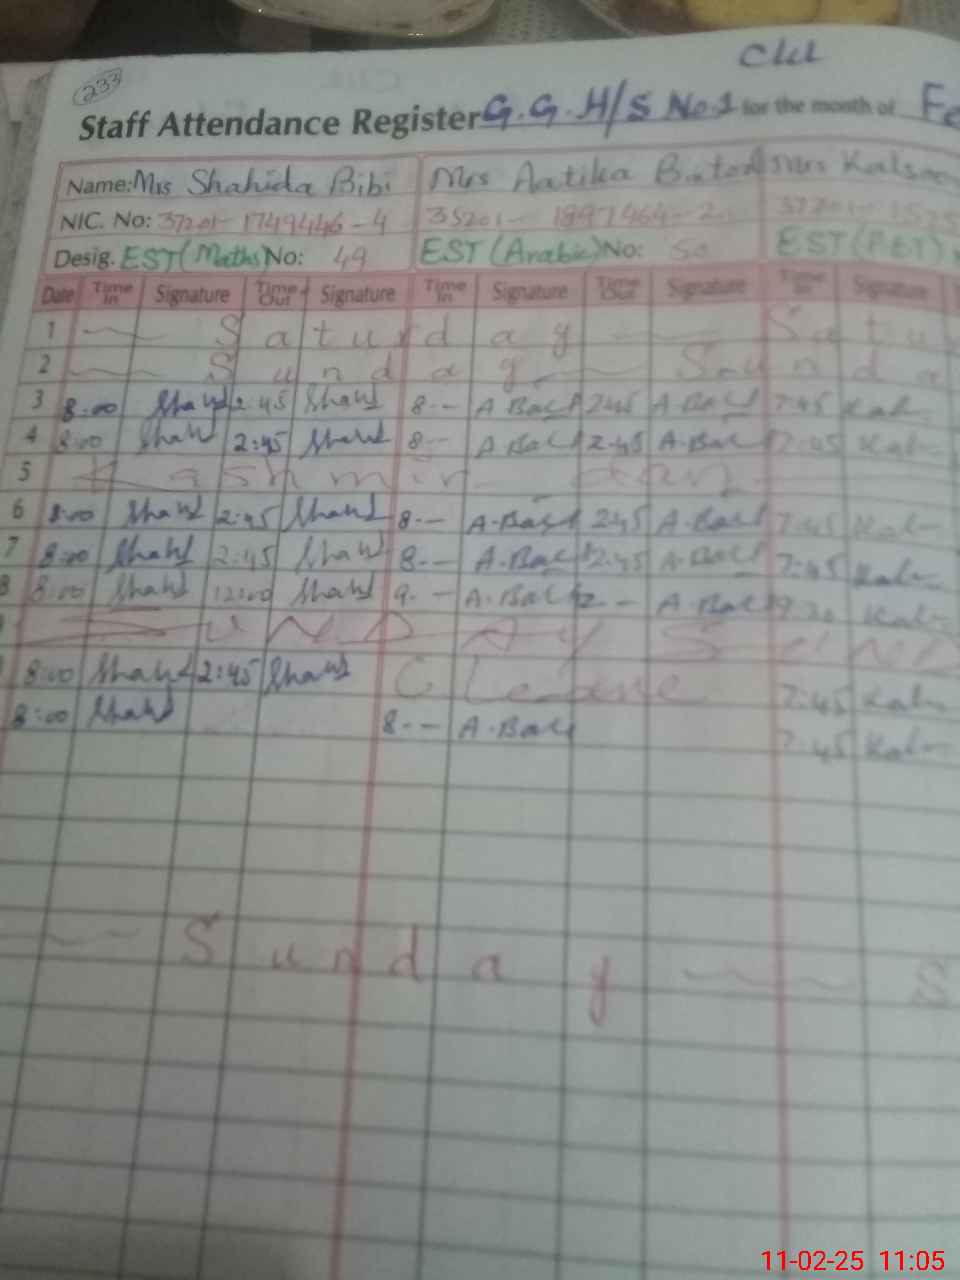 Ckl
233
Staff Attendance Register G.G.H/S No.1 for the month of Fe
Name: Mrs Shahida Bibi Mrs Aatika Batool Mrs Kalsoo
NIC. No: 37201-1749446-4 35201-1897464-2 37201-1575
Desig. EST (Maths) No: 49 EST (Arabic) No: 50 EST (PET)
Date Time In Signature Time Out Signature Time In Signature Time Out Signature Time In Signature
1 Saturday Satu
2 Sunday Sunda
3 8:00 Shah 2:45 Shah 8-- A.Batl 2:45 A.Batl 7:45 Kal
4 8:00 Shah 2:45 Shah 8-- A.Batl 2:45 A.Batl 7:45 Kal
5 Kashmir day
6 8:00 Shah 2:45 Shah 8-- A.Batl 2:45 A.Batl 7:45 Kal
7 8:00 Shah 2:45 Shah 8-- A.Batl 2:45 A.Batl 7:45 Kal
8 8:00 Shah 12:00 Shah 9-- A.Batl 12-- A.Batl 9:30 Kal
SUNDAY SUND
8:00 Shah 2:45 Shah C Leave 7:45 Kal
8:00 Shah 8-- A.Batl 7:45 Kal
Sunday S
11-02-25 11:05